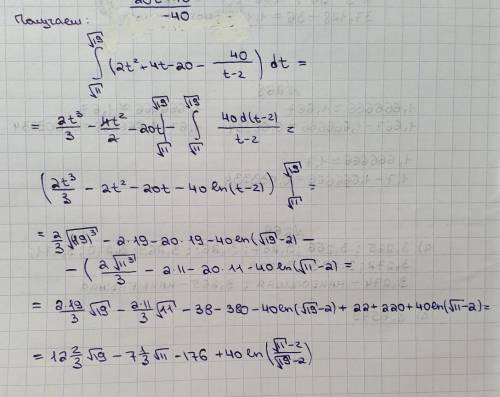 -40
Получаем:
∫_{√11}^{√19} (2t²+4t-20 - 40/(t-2)) dt =
= 2t³/3 - 4t²/2 - 20t |_{√11}^{√19} - ∫_{√11}^{√19} 40d(t-2)/(t-2) =
(2t³/3 - 2t² - 20t - 40 ln(t-2)) |_{√11}^{√19} =
= 2/3 √(19)³ - 2·19 - 20·19 - 40ln(√19-2) -
- (2√11³/3 - 2·11 - 20·11 - 40ln(√11-2) =
= 2·19/3 √19 - 2·11/3 √11 - 38 - 380 - 40ln(√19-2) + 22 + 220 + 40ln(√11-2) =
= 12 2/3 √19 - 7 1/3 √11 - 176 + 40 ln((√11-2)/(√19-2))